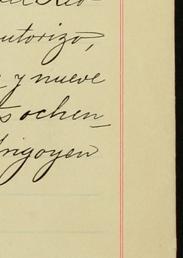 utorizo,
y nueve
s ochen-
rigoyen